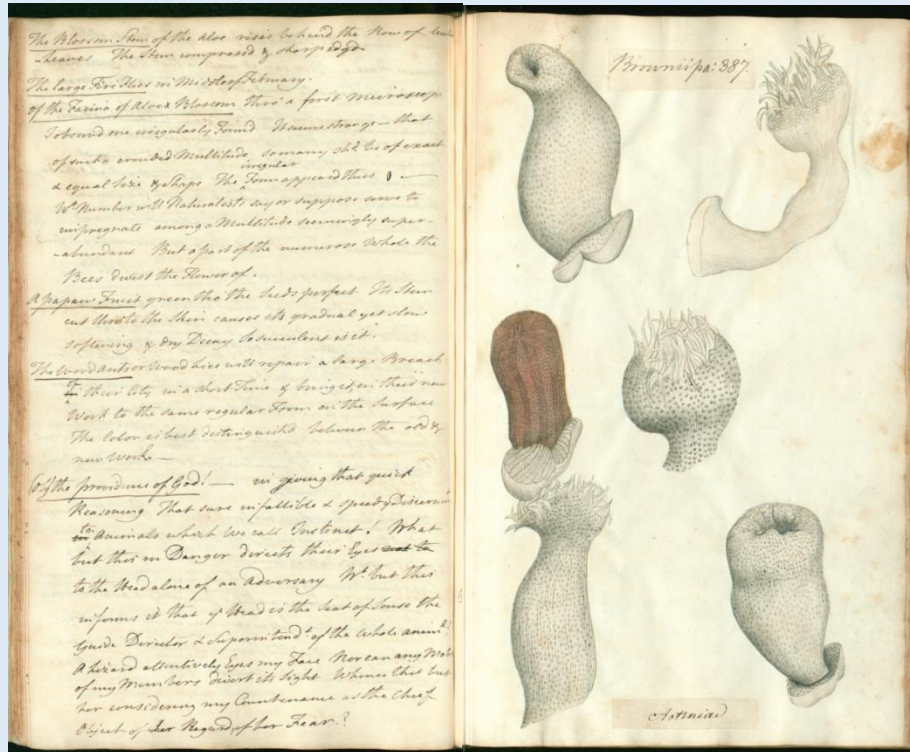 The Blossom Stem of the aloe rises behind the Row of
-Leaves The Stem compressed & sharp edgd
The large Fire Flies in Middle of February.
Of the Farina of Aloes Blossom thro' a first Microscope
I observd one irregularly Formd It seems strange - that
of such a crouded Multitude so many shd. be of exact
irregular
& equal Size & Shape The Form appeard thus
Wt. Number will Naturalists say or suppose serve to
impregnate among a Multitude seemingly super-
-abundant But a part of the numerous Whole the
Bees divest the Flower of.
A papaw Fruit green tho' the Seeds perfect Its Stem
cut thro to the Skin causes its gradual yet slow
softening & dry Decay so succulent as it.
The Wood ants or Wood Lice will repair a large Breach
in their City in a short Time & bringing in their new
Work to the same regular Form on the Surface
The Color is best distinguishd between the old &
new Work -
Of the providence of God! - in giving that quick
Reasoning That sure infallible & speedy
to Animals which We call Instinct! What
but this in Danger directs their Eyes not to
to the Head alone of an Adversary Wt. but this
informs it that ye Head is the Seat of Sense the
Guide Director & Superintendt. of the whole
A Lizard attentively Eyes my Face Nor can any
of my Members divert its Sight Whence this but
her considering my Countenance as the Chief
Object of her Regard, of her Fear?
Browni pa: 387.
Actiniae